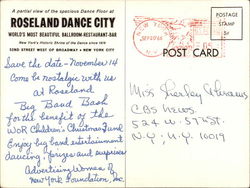 A partial view of the spacious Dance Floor at
ROSELAND DANCE CITY
WORLD'S MOST BEAUTIFUL BALLROOM-RESTAURANT-BAR
New York's Historic Shrine of the Dance since 1919
52ND STREET WEST OF BROADWAY • NEW YORK CITY
Save the date - November 14
Come be nostalgic with us
at Roseland
Big Band Bash
for the benefit of the
WOR Children's Christmas Fund
Enjoy big band entertainment
dancing, prizes and surprises
Advertising Women of
New York Foundation, Inc.
POSTAGE
STAMP
POST CARD
Miss Shirley
CBS News
524 W. 57th St.
N.Y., N.Y. 10019